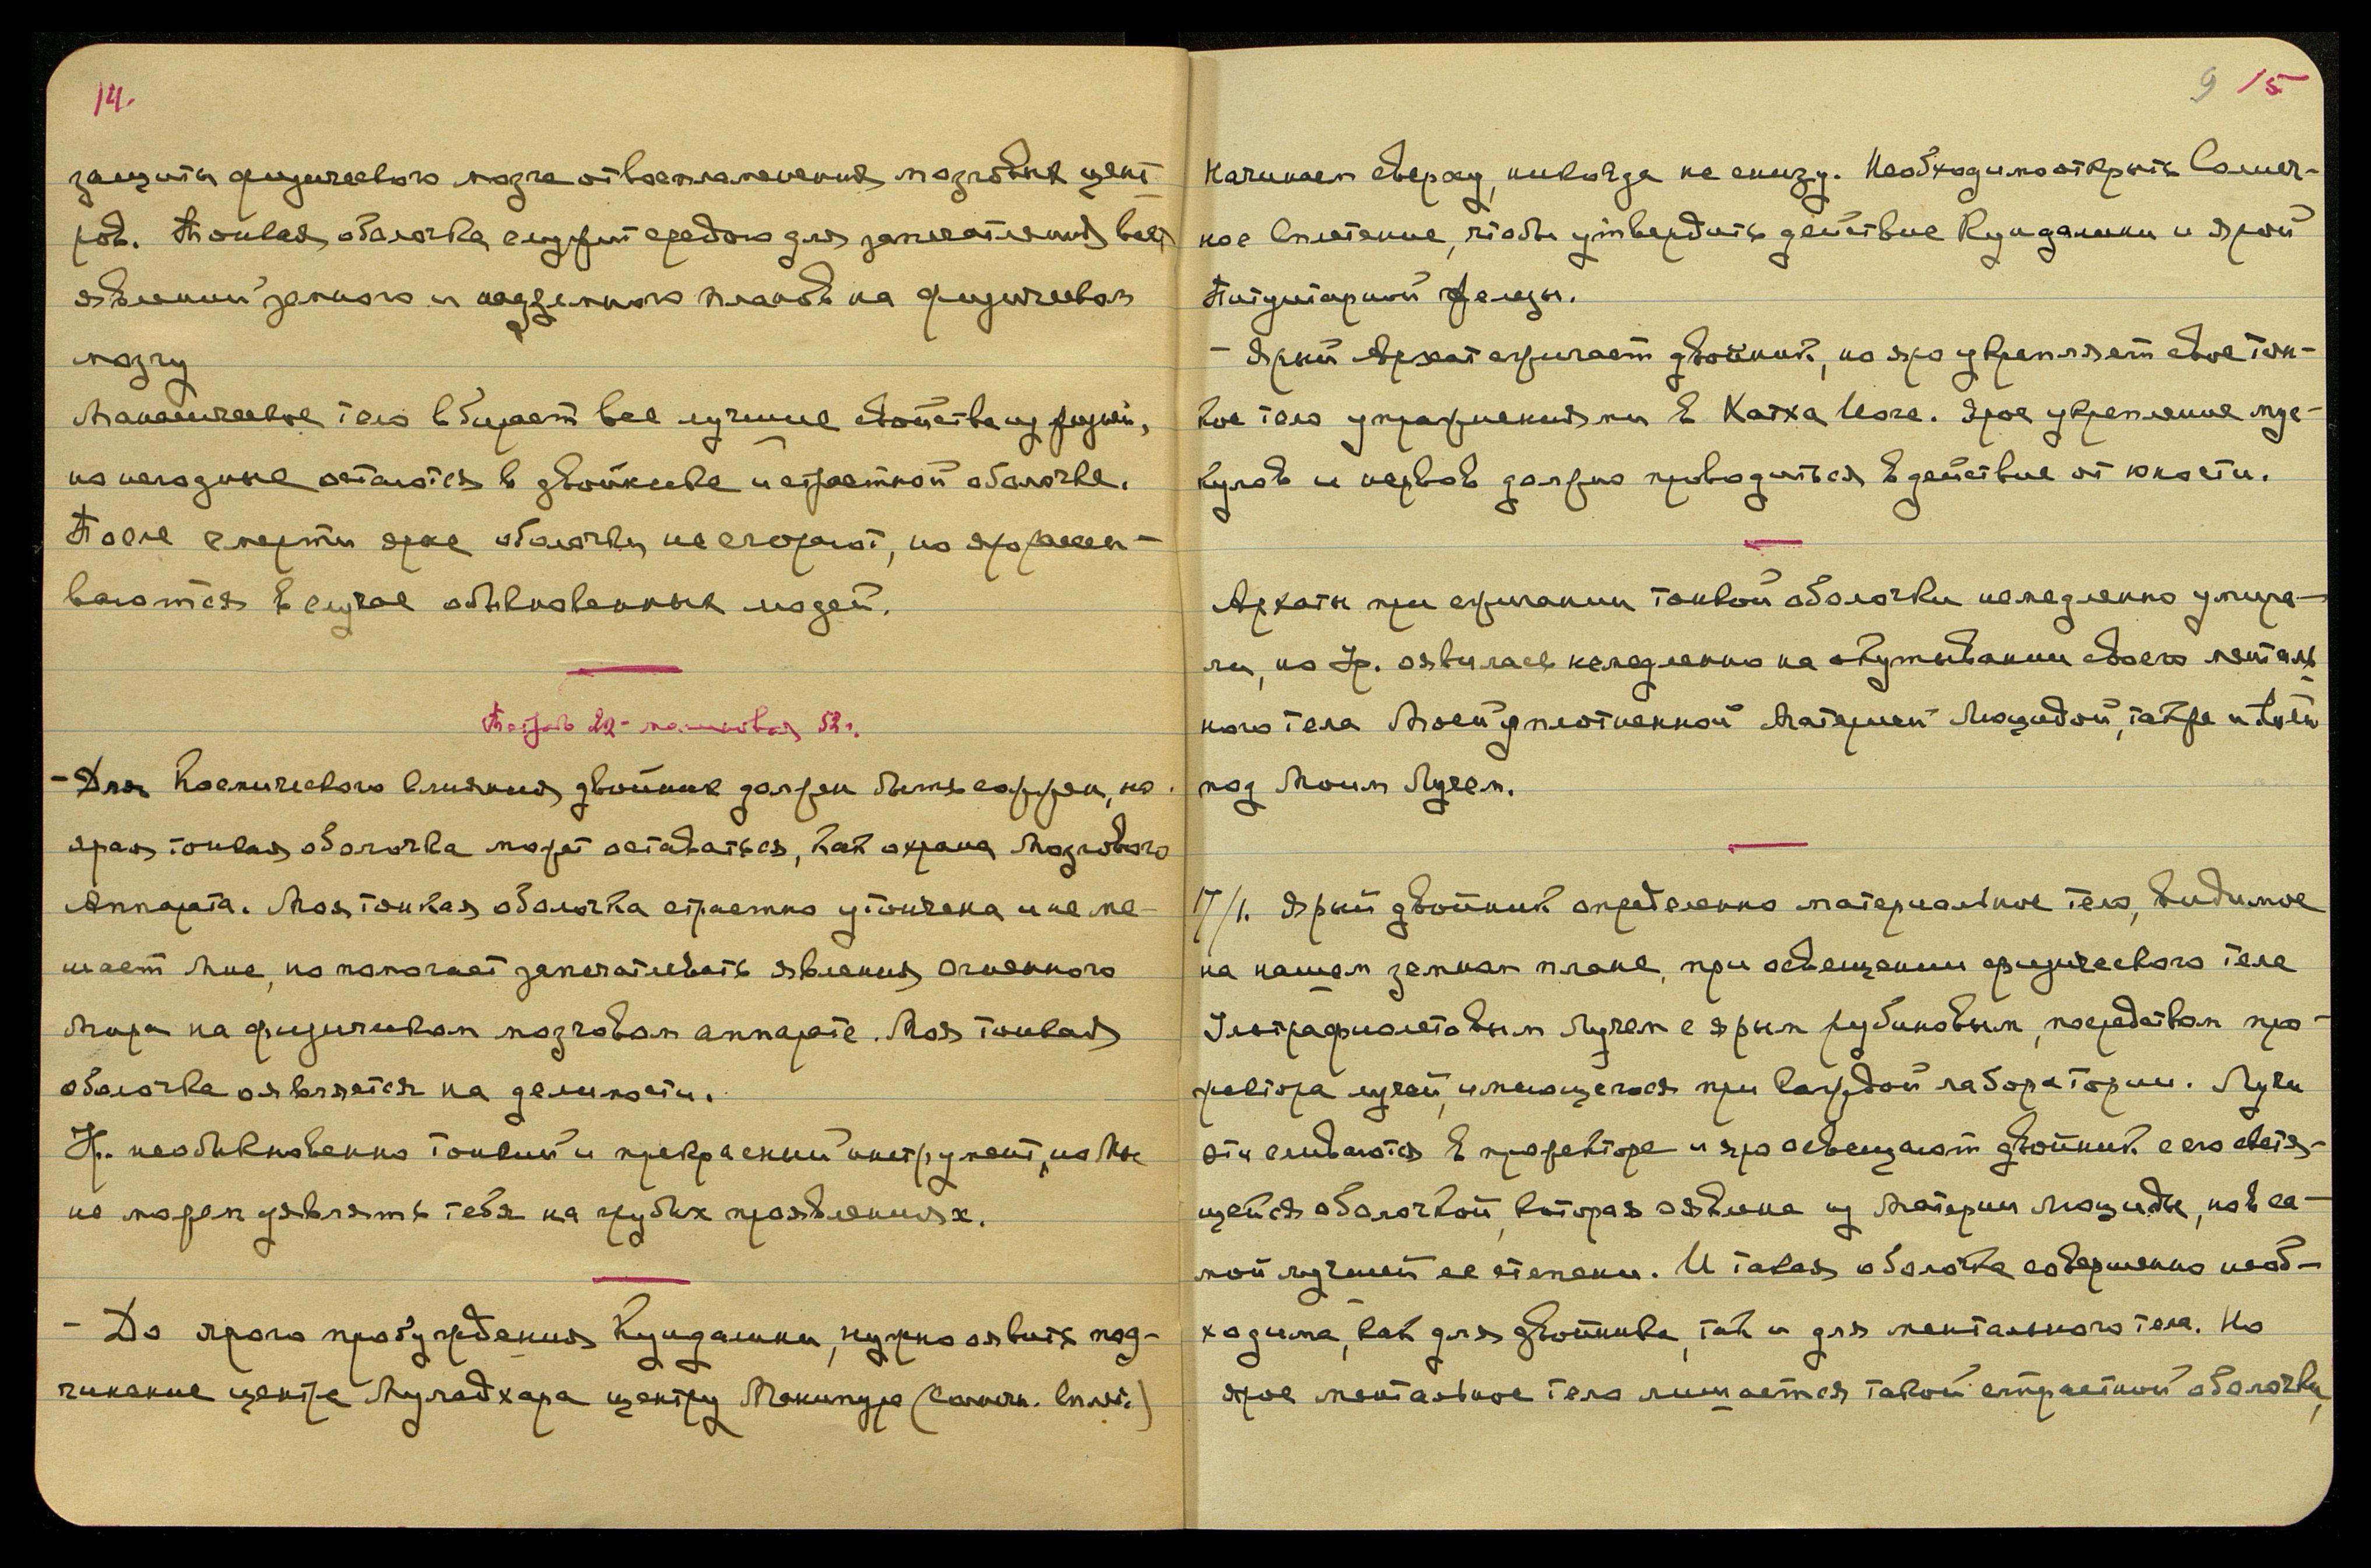 14.
защиты физического мозга от воспламенения мозговых цент-
ров. Тонкая оболочка служит средою для запечатления всех
явлений земного и надземного планов на физическом
мозгу
Манасическое тело вбирает все лучшие свойства из
но негодные остаются в двойнике и страстной оболочке.
После смерти ярые оболочки не сгорают, но
ваются в случае обыкновенных людей.
Тетрадь 52 г.
- Для Космического влияния двойник должен быть сожжен, но
ярая тонкая оболочка может оставаться, как охрана Мозгового
Аппарата. Моя тонкая оболочка страстно утончена и не ме-
шает Мне, но помогает запечатлевать явления Огненного
Мира на физическом мозговом аппарате. Моя тонкая
оболочка является на делимости.
Ур. необыкновенно тонкий и прекрасный инструмент, но Мы
не можем уявлять тебя на грубых проявлениях.
- До ярого пробуждения Кундалини, нужно оявить под-
чинение центра Муладхара центру Манипура (Солнечн. Сплет.)
9 15
Начинаем сверху, никогда не снизу. Необходимо открыть Солнеч-
ное Сплетение, чтобы утвердить действие Кундалини и ярой
Питуитарной железы.
- Ярый Архат сжигает двойник, но яро укрепляет свое тон-
кое тело упражнениями в Хатха Йоге. Ярое укрепление мус-
кулов и нервов должно приводиться в действие от юности.
Архаты при сжигании тонкой оболочки немедленно умира-
ли, но Ур. оявилась немедленно на окутывании своего менталь-
ного тела Моей уплотненной Материей Люцидой, также и
под Моим Лучем.
17/1. Ярый двойник определенно материальное тело, видимое
на нашем земном плане, при освещении физического тела
Ультрафиолетовым Лучем с ярым рубиновым, посредством про-
жектора лучей, имеющегося при каждой лаборатории. Лучи
эти сливаются в прожекторе и яро освещают двойник с его светя-
щейся оболочкой, которая оявлена из Материи Люциды, но в са-
мой лучшей ее степени. И такая оболочка совершенно необ-
ходима, как для двойника, так и для ментального тела. Но
ярое ментальное тело лишается такой страстной оболочки,